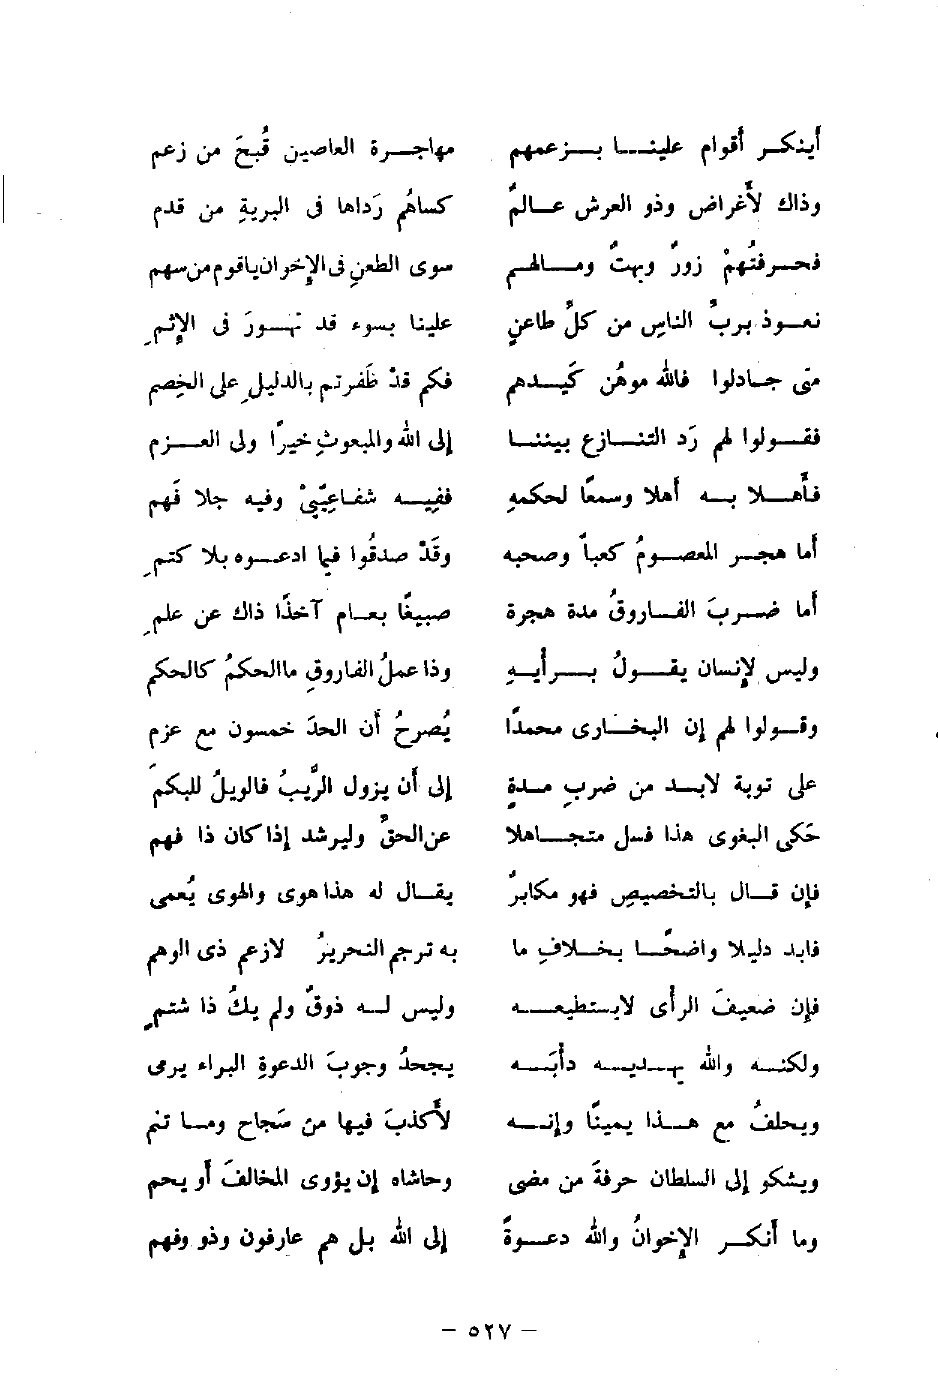 أينكر أقوام علينا بزعمهم مهاجرة العاصين قُبحَ من زعم
وذاك لأغراض وذو العرش عالمٌ كساهُم رَداها فى البريةِ من قدم
فحرفتُهمْ زورٌ وبهتٌ ومالهم سوى الطعنِ فى الإخوان ياقوم من سهم
نعوذ بربِّ الناسِ من كلِّ طاعنٍ علينا بسوء قد تهورَ فى الإثمِ
متى جادلوا فالله موهُن كَيدهم فكم قدْ ظَفرتم بالدليلِ على الخِصم
فقولوا لهم رَد التنازع بيننا إلى الله والمبعوثِ خيرًا ولى العزم
فأهلا به أهلا وسمعًا لحكمهِ ففِيه شفاعِيّىْ وفيه جلا فَهم
أما هجر المعصومُ كعباً وصحبه وقَدْ صدقُوا فيما ادعوه بلا كتمِ
أما ضربَ الفاروقُ مدة هجرة صبيغًا بعام آخذًا ذاك عن علمِ
وليس لإنسان يقولُ برأيهِ وذا عملُ الفاروقِ ماالحكمُ كالحكم
وقولوا لهم إن البخارى محمدًا يُصرحُ أن الحدَ خمسون مع عزم
على توبة لابد من ضربِ مدةٍ إلى أن يزول الرَّيبُ فالويلُ للبكمَ
حَكى البغوى هذا فسل متجاهلا عن الحقِّ وليرشد إذا كان ذا فهم
فإن قال بالتخصيصِ فهو مكابرٌ يقال له هذا هوى والهوى يُعمى
فابد دليلا واضحًا بخلافِ ما به ترجم النحريرُ لازعم ذى الوهم
فإن ضعيفَ الرأى لايستطيعه وليس له ذوقٌ ولم يكُ ذا شتمٍ
ولكنه والله يهديه دأبَه يجحدُ وجوبَ الدعوةِ البراء يرمى
ويحلفُ مع هذا يمينًا وإنه لأكذبَ فيها من سَجاح وما تنم
ويشكو إلى السلطان حرفةَ من مضى وحاشاه إن يؤوى المخالفَ أو يحم
وما أنكر الإخوانُ والله دعوةً إلى الله بل هم عارفون وذو وفهم
– ٥٢٧ –